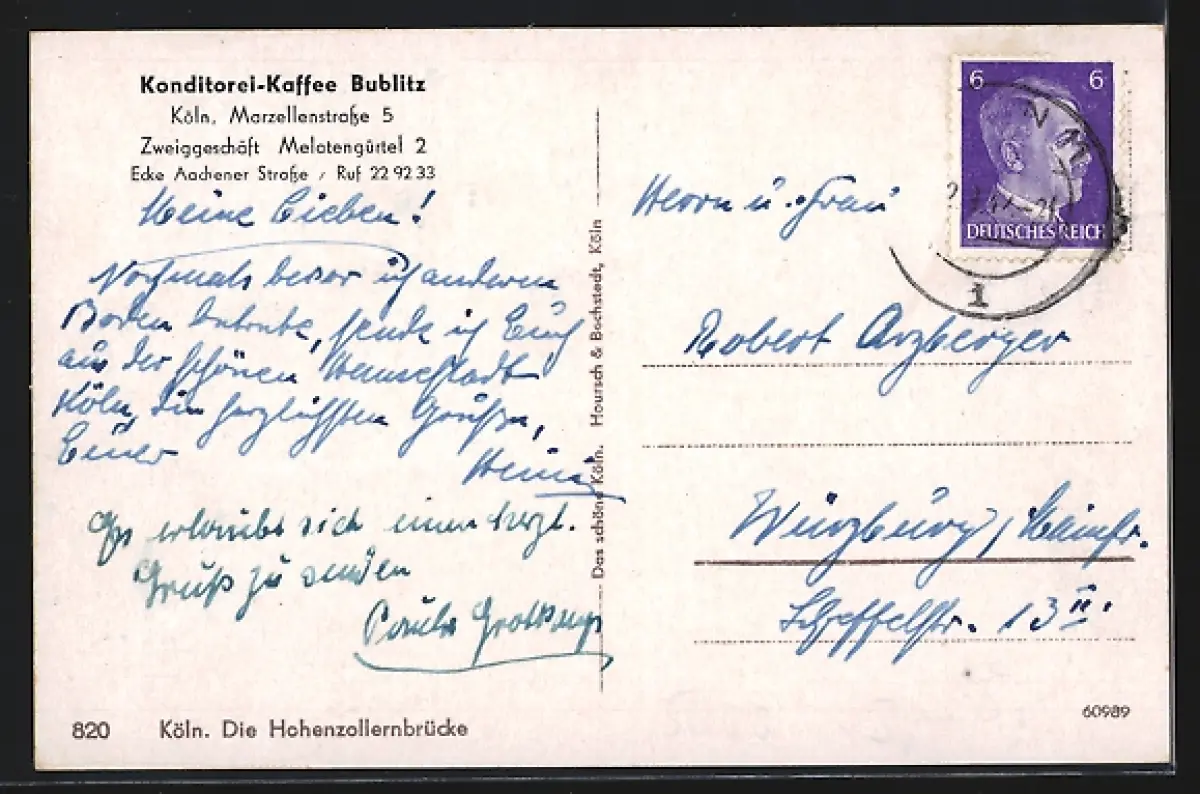 Konditorei-Kaffee Bublitz
Köln, Marzellenstraße 5
Zweiggeschäft Melatengürtel 2
Ecke Aachener Straße / Ruf 22 92 33
Meine Lieben!
Nochmals bevor ich anderen
Boden betrete, sende ich Euch
aus der schönen Hansestadt
Köln, die herzlichsten Grüße,
Euer Heini
Es erlaubt sich einen herzl.
Gruß zu senden
Paula
Das schöne Köln. Hoursch & Bechstedt, Köln
6 6
DEUTSCHES REICH
1
Herrn u. Frau
Robert Arzberger
Würzburg / Mainfr.
Scheffelstr. 13 II.
820 Köln. Die Hohenzollernbrücke
60989